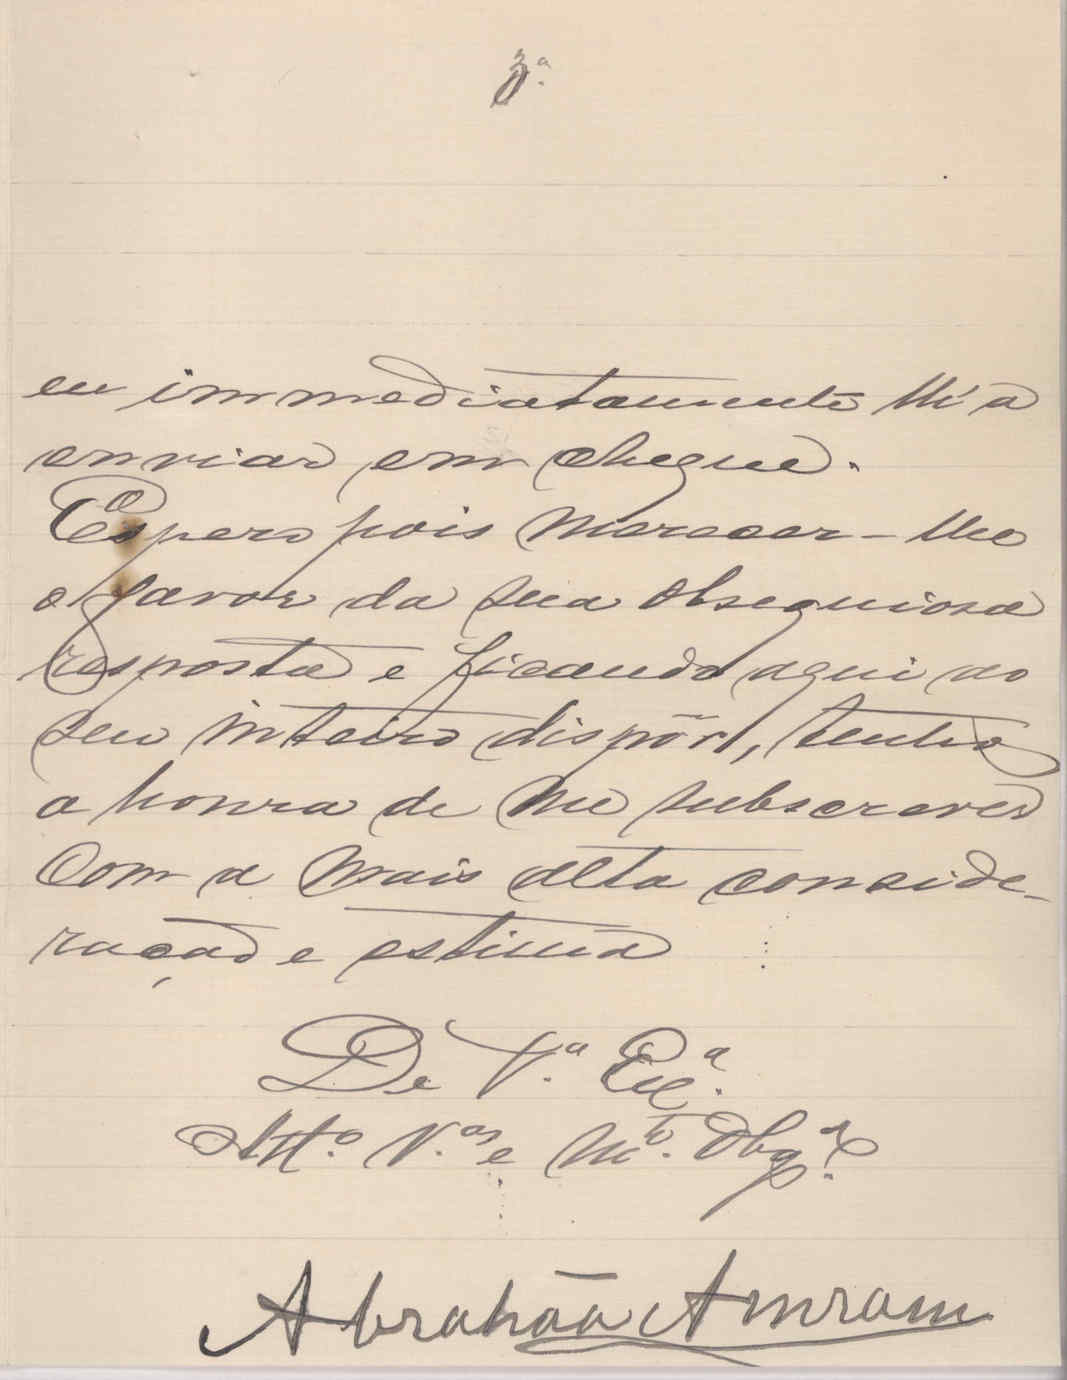 3ª.
eu immediatamente lh'a
enviar em cheque.
Espero pois merecer-lhe
o favor da sua obsequiosa
resposta e ficando aqui ao
seu inteiro dispôr, tenho
a honra de me subscrever
com a mais alta conside-
ração e estima
De V.ª Exª.
Attº. V.ºr e mtº. Obgº.
Abrahão Amram